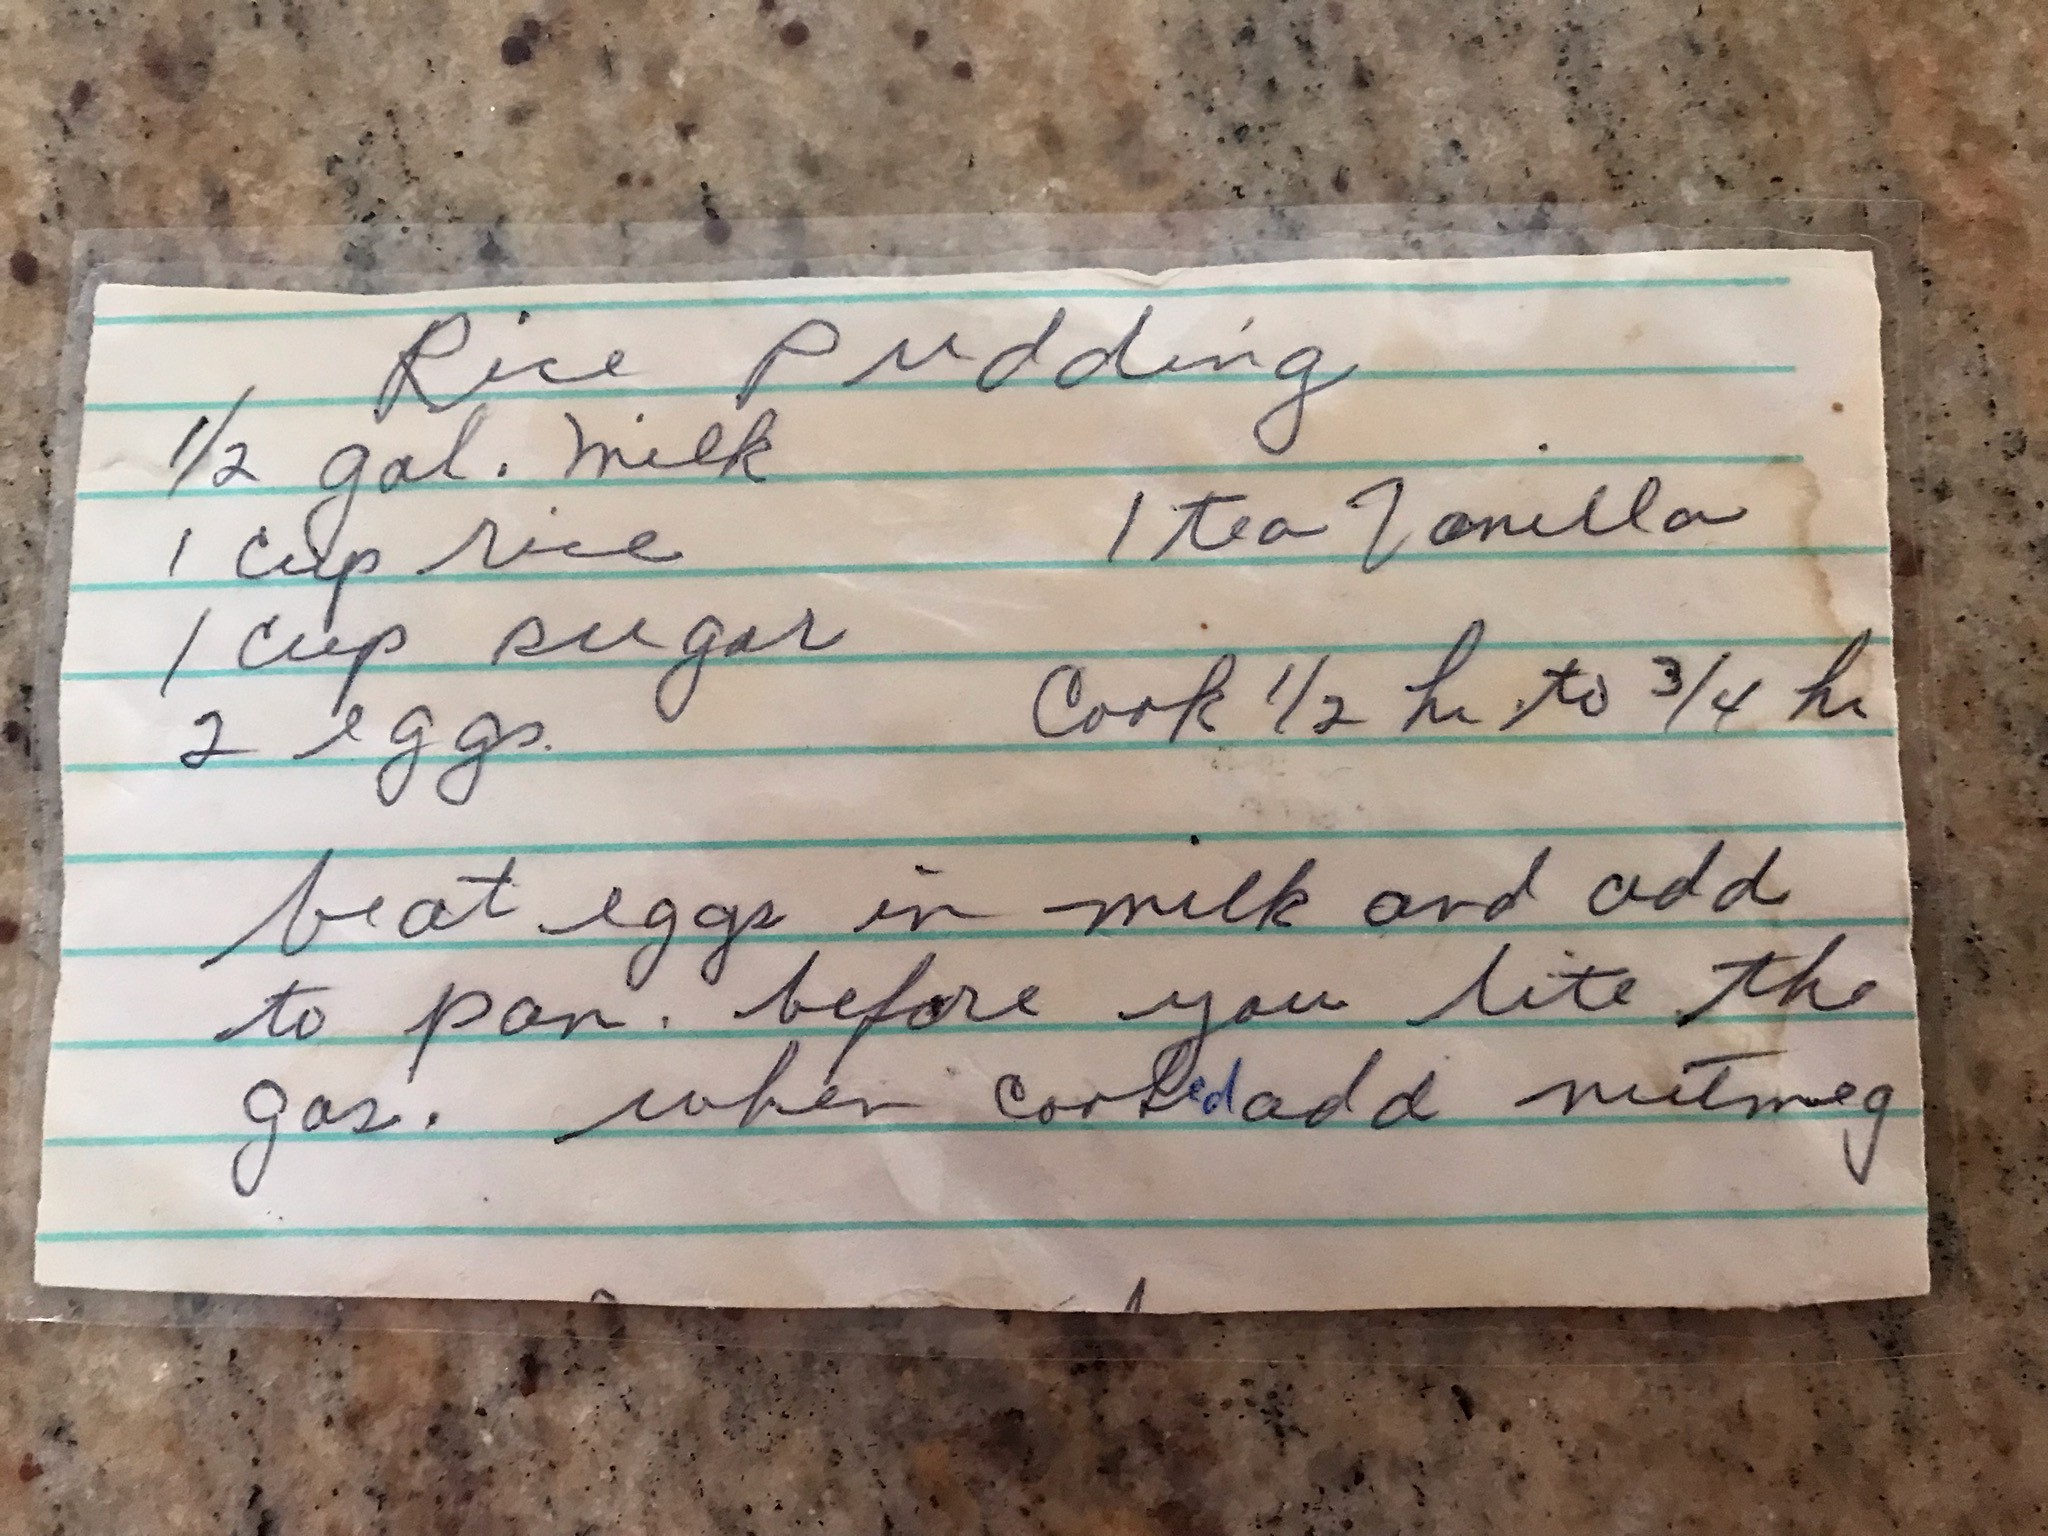 Rice Pudding
1/2 gal. Milk
1 cup rice
1 tea Vanilla
1 cup sugar
2 eggs.
Cook 1/2 hr. to 3/4 hr
beat eggs in milk and add
to pan. before you lite the
gas. when cooked add nutmeg